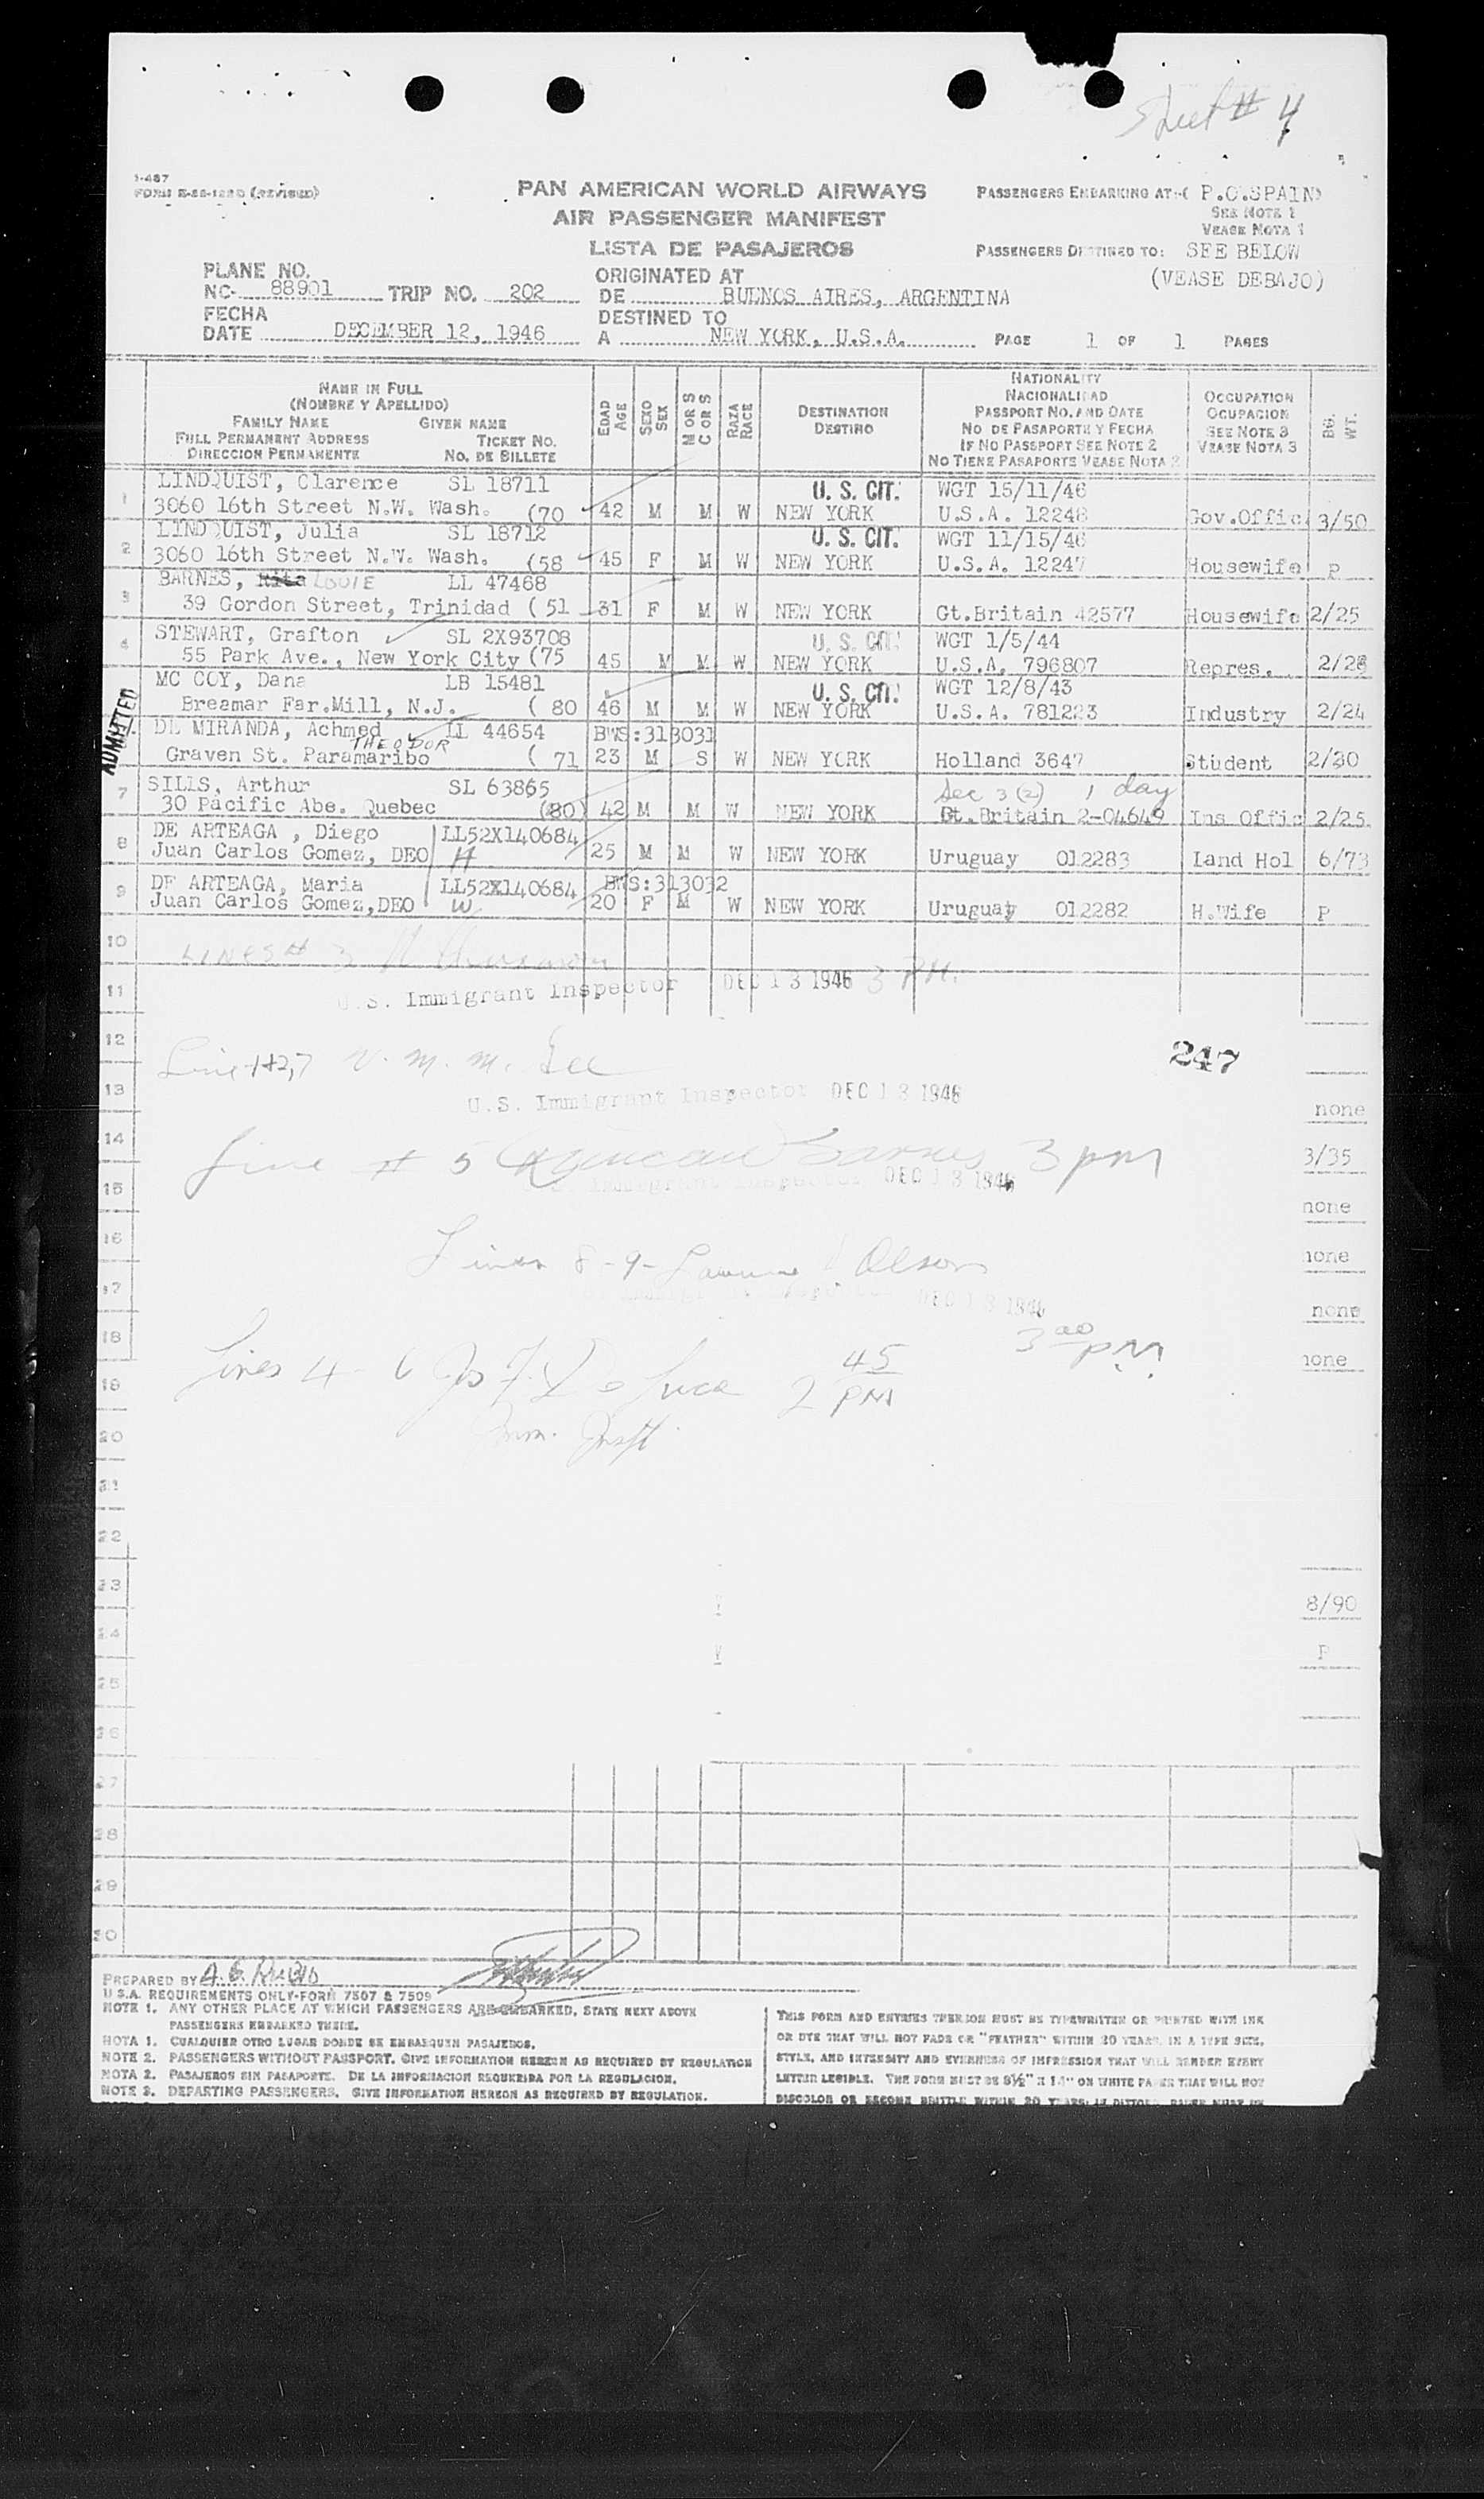 Sheet # 4
I-487
FORM E-SS-122D (REVISED)
PAN AMERICAN WORLD AIRWAYS
AIR PASSENGER MANIFEST
LISTA DE PASAJEROS
PASSENGERS EMBARKING AT:-( P.O.SPAIN)
SEE NOTE 1
VEASE NOTA 1
PASSENGERS DESTINED TO: SEE BELOW
(VEASE DEBAJO)
PLANE NO.
NC- 88901 TRIP NO. 202
ORIGINATED AT
DE BUENOS AIRES, ARGENTINA
FECHA
DATE DECEMBER 12, 1946
DESTINED TO
A NEW YORK, U.S.A. PAGE 1 OF 1 PAGES
NAME IN FULL
(NOMBRE Y APELLIDO)
FAMILY NAME GIVEN NAME
FULL PERMANENT ADDRESS TICKET NO.
DIRECCION PERMANENTE NO. DE BILLETE
EDAD AGE
SEXO SEX
M OR S C OR S
RAZA RACE
DESTINATION
DESTINO
NATIONALITY
NACIONALIDAD
PASSPORT NO. AND DATE
NO DE PASAPORTE Y FECHA
IF NO PASSPORT SEE NOTE 2
NO TIENE PASAPORTE VEASE NOTA 2
OCCUPATION
OCUPACION
SEE NOTE 3
VEASE NOTA 3
BG. WT.
LINDQUIST, Clarence SL 18711 U. S. CIT. WGT 15/11/46
1 3060 16th Street N.W. Wash. (70 42 M M W NEW YORK U.S.A. 12248 Gov.Offic 3/50
LINDQUIST, Julia SL 18712 U. S. CIT. WGT 11/15/46
2 3060 16th Street N.W. Wash. (58 45 F M W NEW YORK U.S.A. 12247 Housewife P
BARNES, Rita LOUIE LL 47468
3 39 Gordon Street, Trinidad ( 51 31 F M W NEW YORK Gt.Britain 42577 Housewife 2/25
STEWART, Grafton SL 2X93708 U. S. CIT. WGT 1/5/44
4 55 Park Ave., New York City (75 45 M M W NEW YORK U.S.A. 796807 Repres. 2/28
MC COY, Dana LB 15481 U. S. CIT. WGT 12/8/43
Breamar Far.Mill, N.J. ( 80 46 M M W NEW YORK U.S.A. 781223 Industry 2/24
ADMITTED
DE MIRANDA, Achmed LL 44654 BWS:313031
THEODOR
Graven St. Paramaribo ( 71 23 M S W NEW YORK Holland 3647 Student 2/30
SILLS, Arthur SL 63865 Sec 3 (2) 1 day
7 30 Pacific Abe. Quebec (80) 42 M M W NEW YORK Gt.Britain 2-04649 Ins Offic 2/25
DE ARTEAGA , Diego LL52X140684
8 Juan Carlos Gomez, DEO H 25 M M W NEW YORK Uruguay 012283 Land Hol 6/73
DE ARTEAGA, Maria LL52X140684 BWS:313032
9 Juan Carlos Gomez,DEO W 20 F M W NEW YORK Uruguay 012282 H.Wife P
10 LINES # 3
11 U.S. Immigrant Inspector DEC 13 1946 3 PM.
12 Line 1+2,7 V. M. M. Lee 247
13 U.S. Immigrant Inspector DEC 13 1946 none
14 Line # 5 Barnes 3 pm 3/35
15 Immigrant Inspector DEC 13 1946 none
16 Lines 8-9- Olson none
17 DEC 13 1946 none
18 3 00 PM none
19 Lines 4-6 2 45 PM
20 Imm. Inspt.
21
22
23 8/90
24 P
25
26
27
28
29
30
PREPARED BY A. G. Rubio
U S.A. REQUIREMENTS ONLY-FORM 7507 & 7509
NOTE 1. ANY OTHER PLACE AT WHICH PASSENGERS ARE EMBARKED, STATE NEXT ABOVE
PASSENGERS EMBARKED THERE.
NOTA 1. CUALQUIER OTRO LUGAR DONDE SE EMBARQUEN PASAJEROS.
NOTE 2. PASSENGERS WITHOUT PASSPORT. GIVE INFORMATION HEREON AS REQUIRED BY REGULATION
NOTA 2. PASAJEROS SIN PASAPORTE. DE LA INFORMACION REQUERIDA POR LA REGULACION.
NOTE 3. DEPARTING PASSENGERS. GIVE INFORMATION HEREON AS REQUIRED BY REGULATION.
THIS FORM AND ENTRIES THEREON MUST BE TYPEWRITTEN OR PRINTED WITH INK
OR DYE THAT WILL NOT FADE OR "FEATHER" WITHIN 20 YEARS, IN A TYPE SIZE,
STYLE, AND INTENSITY AND EVENNESS OF IMPRESSION THAT WILL RENDER EVERY
LETTER LEGIBLE. THE FORM MUST BE 8½" X 14" ON WHITE PAPER THAT WILL NOT
DISCOLOR OR BECOME BRITTLE WITHIN 20 YEARS;